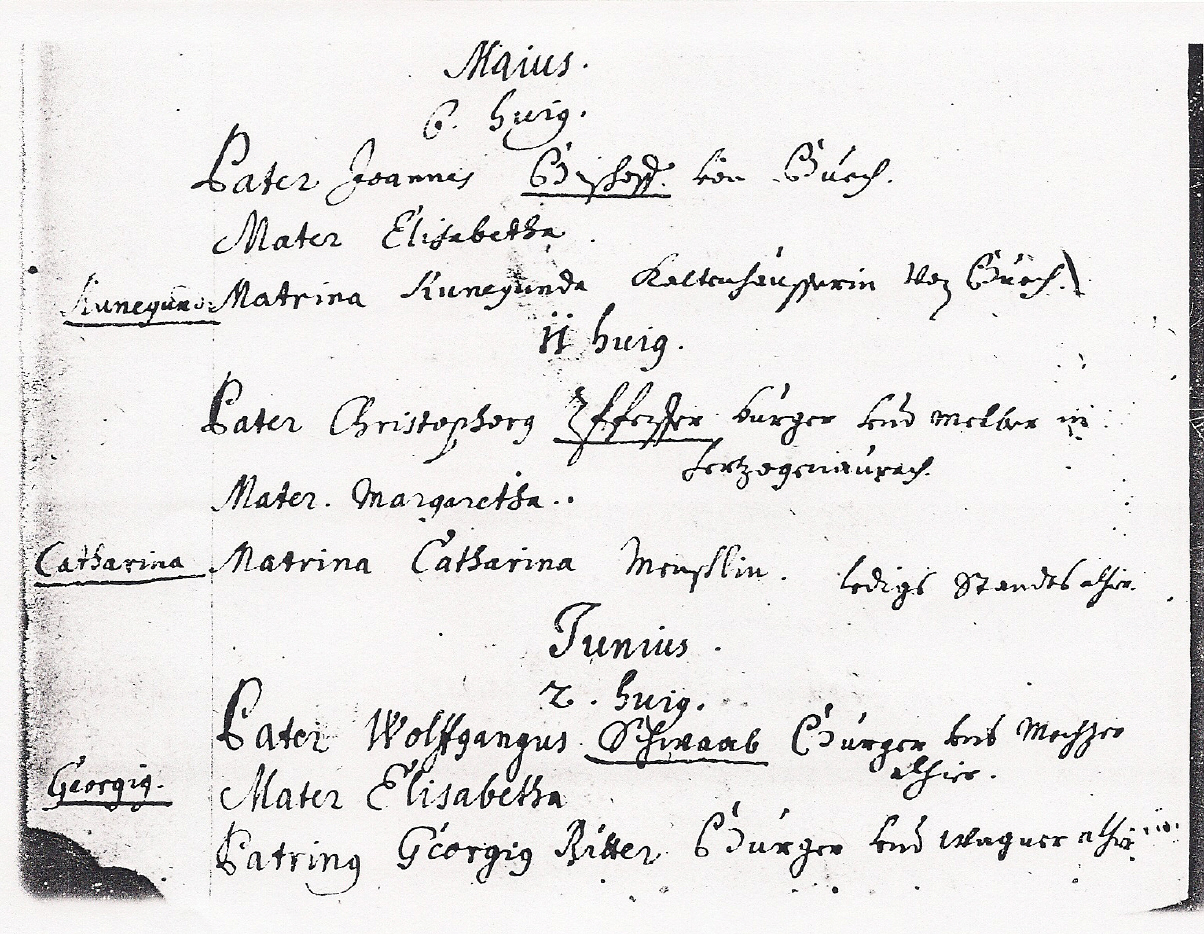 Maius.
6. huig.
Pater Joannes Bischoff von Büech.
Mater Elisabetha
Kunegund. Matrina Kunegunda Kaltenheüsserin von Büech.
11 huig.
Pater Christophorg bürger vnd Melber in
Hertzogenaürach.
Mater. Margaretha..
Catharina Matrina Catharina ledigs Standts alhier.
Junius.
2. huig.
Pater Wolffgangus Schwaab Bürger vnd Metzger
alhier.
Georgig. Mater Elisabetha
Patring Georgig Ritter Bürger vnd Wagner alhier